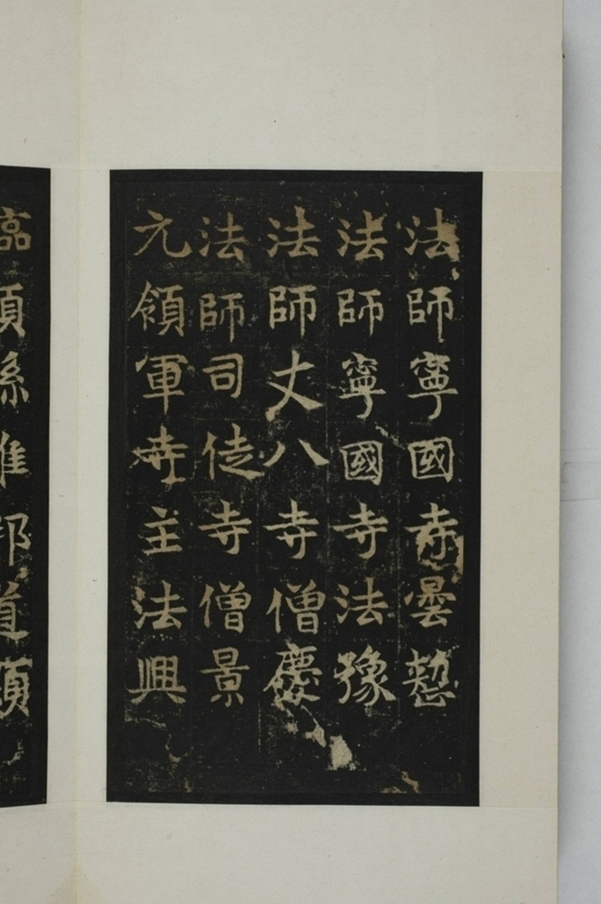 法師寧國寺曇愸
法師寧國寺法豫
法師丈八寺僧慶
法師司徒寺僧景
元領軍寺主法興
頭縣維那道顯